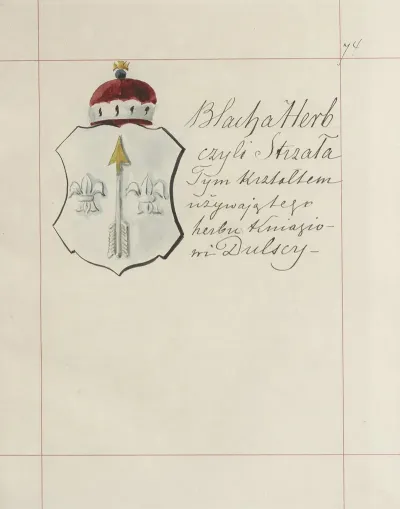 74
Blacha Herb
czyli Strzała
Tym Krztołtem
używającego
herbu Kniazio-
wi Dulscy -